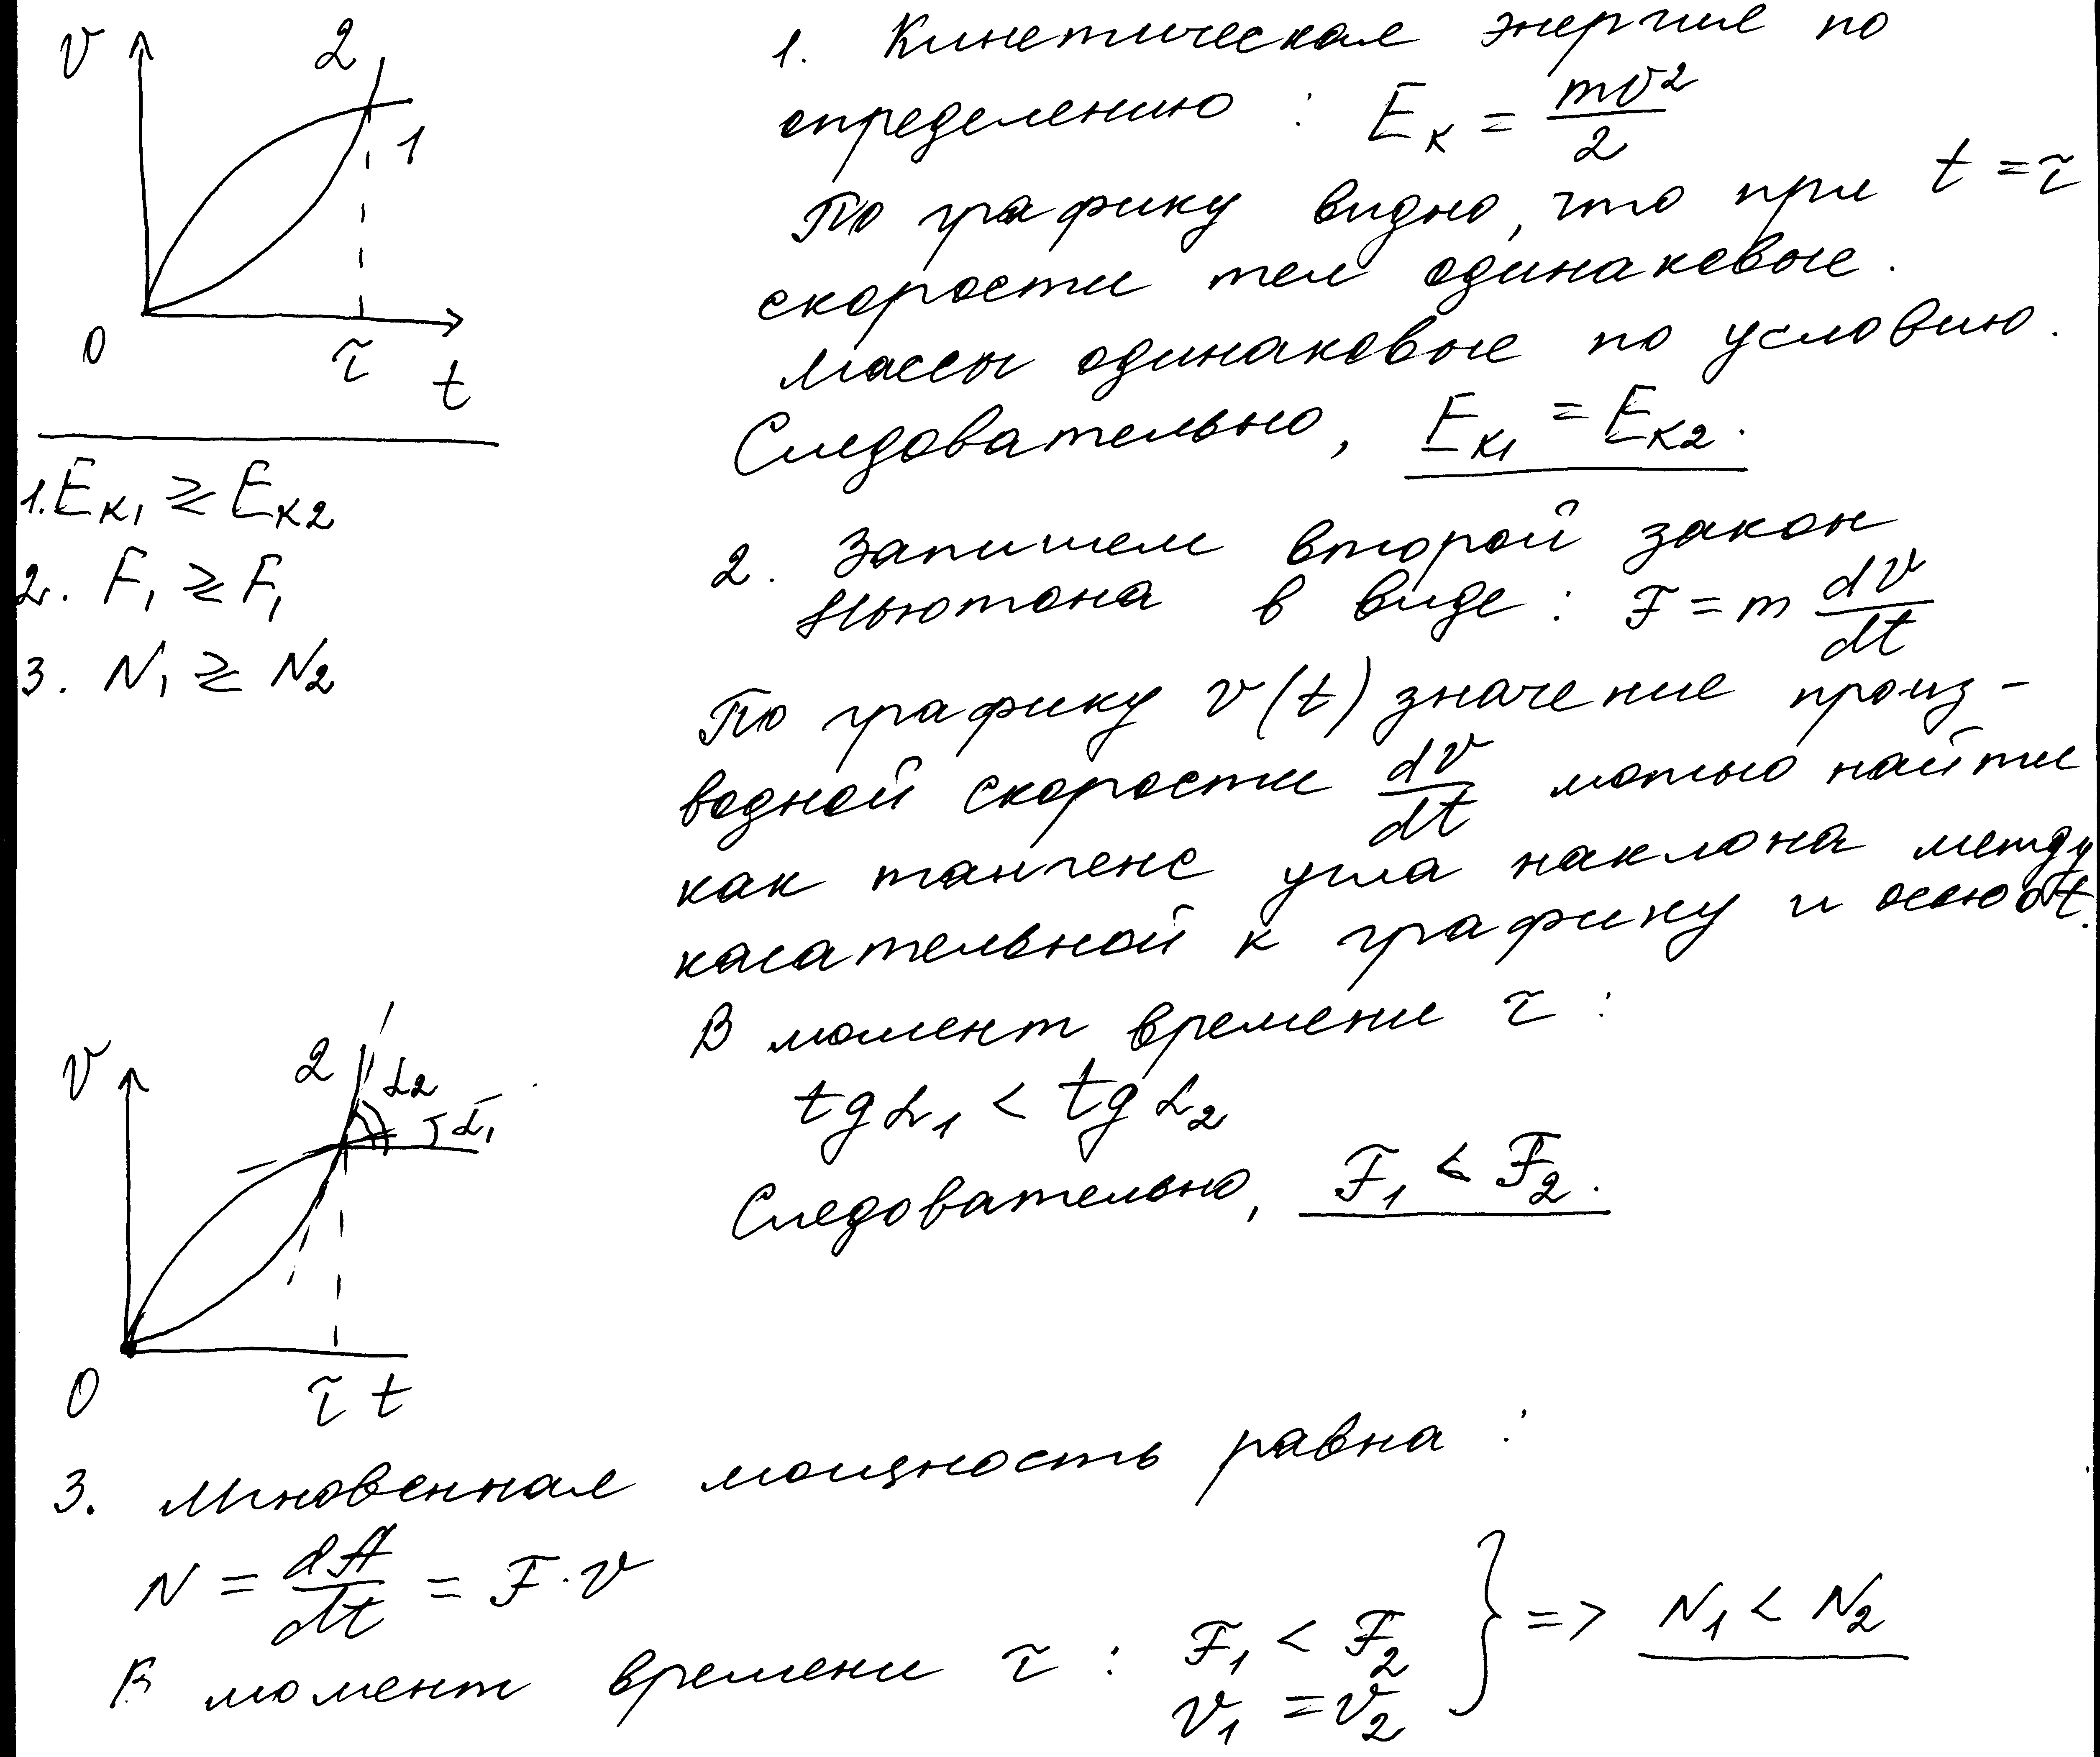 v
2
1
0
τ
t
1. Eк1 ⩾ Eк2
2. F1 ⩾ F1
3. N1 ⩾ N2
1. Кинетическая энергия по
определению : Eк = mv²/2
По графику видно, что при t = τ
скорости тел одинаковые.
Массы одинаковые по условию.
Следовательно, Eк1 = Eк2.
2. Запишем второй закон
Ньютона в виде : F = m dv/dt
По графику v(t) значение произ-
водной скорости dv/dt можно найти
как тангенс угла наклона между
касательной к графику и осью 0t.
В момент времени τ :
tg α1 < tg α2
Следовательно, F1 < F2.
v
2
α2
α1
0
τ t
3. Мгновенная мощность равна :
N = dA/dt = F · v
В момент времени τ : F1 < F2
v1 = v2
} => N1 < N2